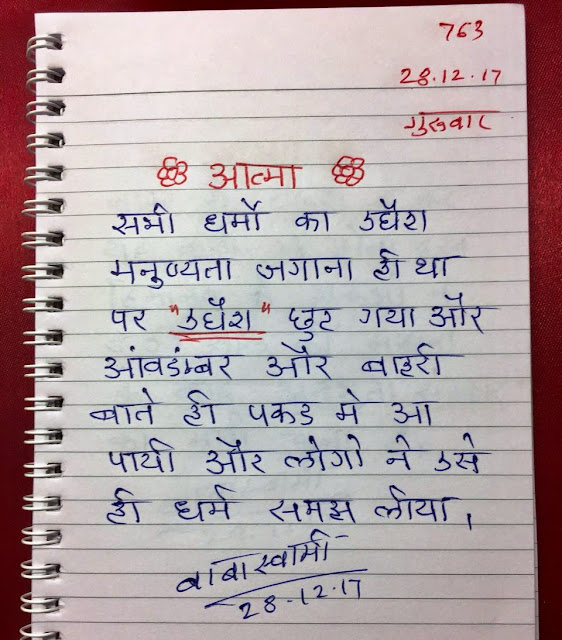 763
28.12.17
गुरुवार
आत्मा
सभी धर्मो का उघैश
मनुष्यता जगाना ही था
पर "उघैश" छुट गया और
आंवडंम्बर और बाहरी
बाते ही पकड मे आ
पायी और लोगो ने उसे
ही धर्म समझ लीया,
बाबास्वामी
28.12.17